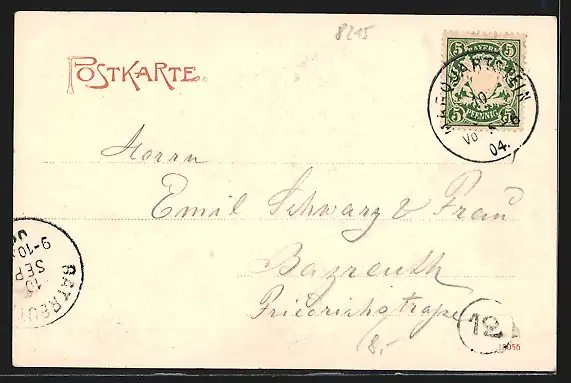 8215
POSTKARTE.
5 BAYERN 5
5 PFENNIG 5
MARQUARTSTEIN
10
04.
Herrn
Emil Schwarz & Frau
Bayreuth
Friedrichstraße
8,-
BAYREUTH
10
SEP
9-10
12
16056